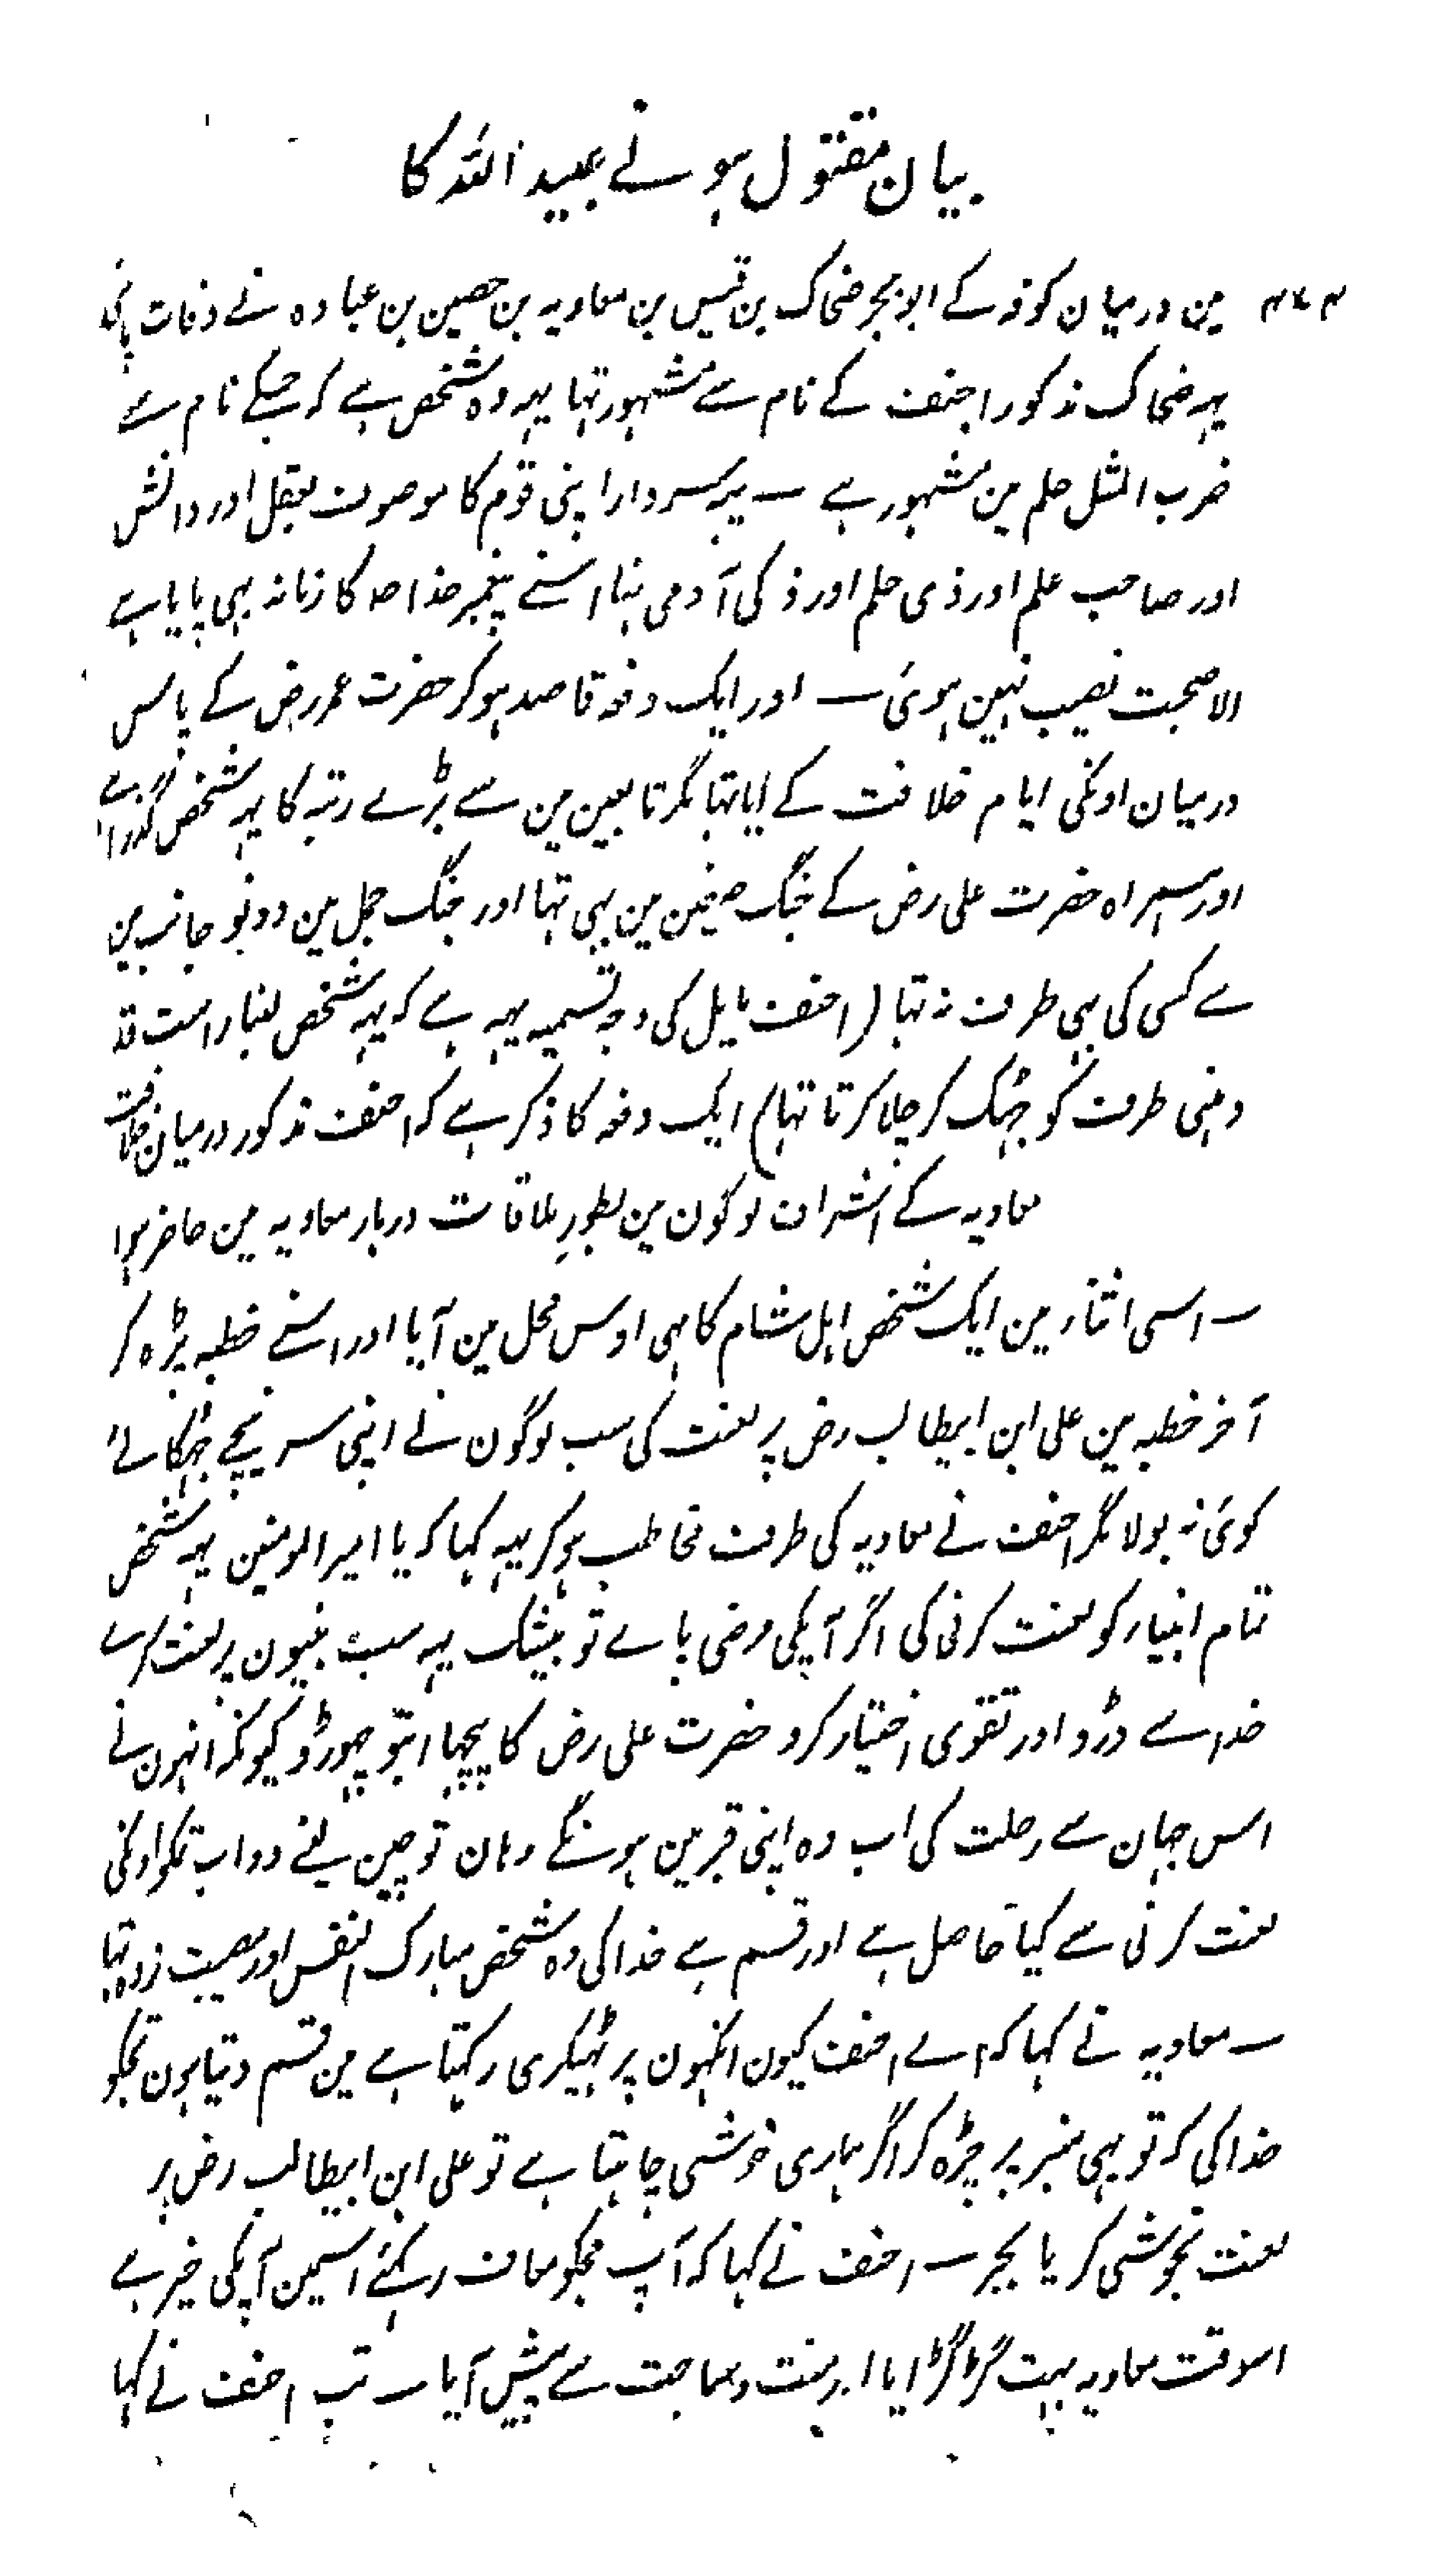 بیان مقتول ہونے عبید اللہ کا
مین درمیان کوفہ کے ابو بحر ضحاک بن قیس بن معاویہ بن حصین بن عبادہ نے وفات پائی
یہہ ضحاک مذکور احنف کے نام سے مشہور تہا یہہ وہ شخص ہے کہ جسکے نام سے
ضرب المثل حلم مین مشہور ہے ــ یہہ سردار اپنی قوم کا موصوف بعقل اور دانش
اور صاحب علم اور ذی حلم اور ذکی آدمی تہا اسنے پیغمبر خدا صہ کا زمانہ بہی پایا ہے
الا صحبت نصیب نہین ہوئی ــ اور ایک دفعہ قاصد ہو کر حضرت عمر رض کے پاس
درمیان اونکی ایام خلافت کے آیا تہا مگر تابعین مین سے بڑے رتبہ کا یہہ شخص گذرا ہے
اور ہمراہ حضرت علی رض کے جنگ صفین مین بہی تہا اور جنگ جمل مین دونو جانب مین
سے کسی کی بہی طرف نہ تہا (احنف مایل کی وجہ تسمیہ یہہ ہے کہ یہہ شخص لنبا راست قد
دہنی طرف کو جہک کر چلا کرتا تہا) ایک دفعہ کا ذکر ہے کہ احنف مذکور درمیان خلافت
معاویہ کے اشراف لوگون مین بطورِ ملاقات دربار معاویہ مین حاضر ہوا
ــ اسی اثنار مین ایک شخص اہل شام کا بہی اوس محل مین آیا اور اسنے خطبہ پڑہ کر
آخر خطبہ مین علی ابن ابیطالب رض پر لعنت کی سب لوگون نے اپنی سر نیچے جہکا لئے
کوئی نہ بولا مگر احنف نے معاویہ کی طرف مخاطب ہو کر یہہ کہا کہ یا امیر المومنین یہہ شخص
تمام انبیار کو لعنت کرنی کی اگر آپکی مرضی پاے تو بیشک یہہ سب نبیون پر لعنت کرے
خدا سے ڈرو اور تقوی اختیار کرو حضرت علی رض کا پیچہا ابتو چہوڑو کیونکہ انہون نے
اس جہان سے رحلت کی اب وہ اپنی قبر مین ہونگے وہان تو چین لینے دو اب تمکو اونکی
لعنت کرنی سے کیا حاصل ہے اور قسم ہے خدا کی وہ شخص مبارک النفس اور مصیبت زدہ تہا
ــ معاویہ نے کہا کہ اے احنف کیون انکہون پر ٹہیکری رکہتا ہے مین قسم دیتا ہون تجکو
خدا کی کہ تو بہی منبر پر چڑہ کر اگر ہماری خوشی چاہتا ہے تو علی ابن ابیطالب رض پر
لعنت بخوشی کر یا بجبر ــ احنف نے کہا کہ آپ مجکو معاف رکہئے اسمین آپکی خیر ہے
اسوقت معاویہ بہت گڑگڑایا اور منت و سماجت سے پیش آیا ــ تب احنف نے کہا